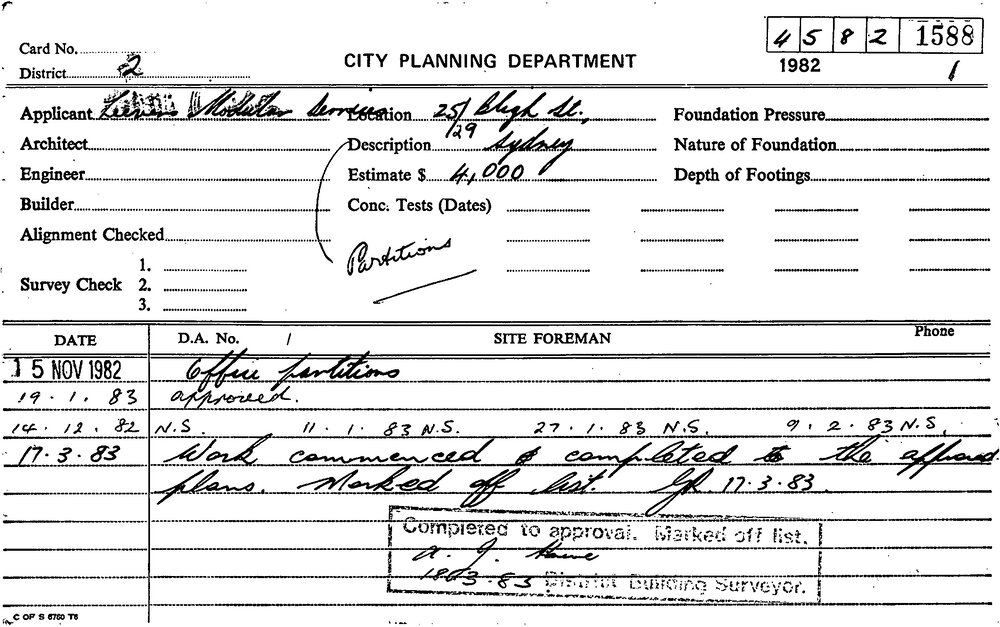 4 5 8 2 1588
Card No.
CITY PLANNING DEPARTMENT
1982 1
District 2
Applicant Modular Services Location 25/29 Bligh St., Foundation Pressure
Architect Description Sydney Nature of Foundation
Engineer Estimate $ 4,000 Depth of Footings
Builder Conc. Tests (Dates)
Alignment Checked
Partitions
1.
Survey Check 2.
3.
DATE D.A. No. / SITE FOREMAN Phone
15 NOV 1982 Office partitions
19.1.83 approved.
14.12.82 N.S. 11.1.83 N.S. 27.1.83 N.S. 9.2.83 N.S.
17.3.83 Work commenced & completed to the approved
plans. Marked off list. 17.3.83.
Completed to approval. Marked off list.
A. J.
18.3.83 District Building Surveyor.
C OF S 6760 T6